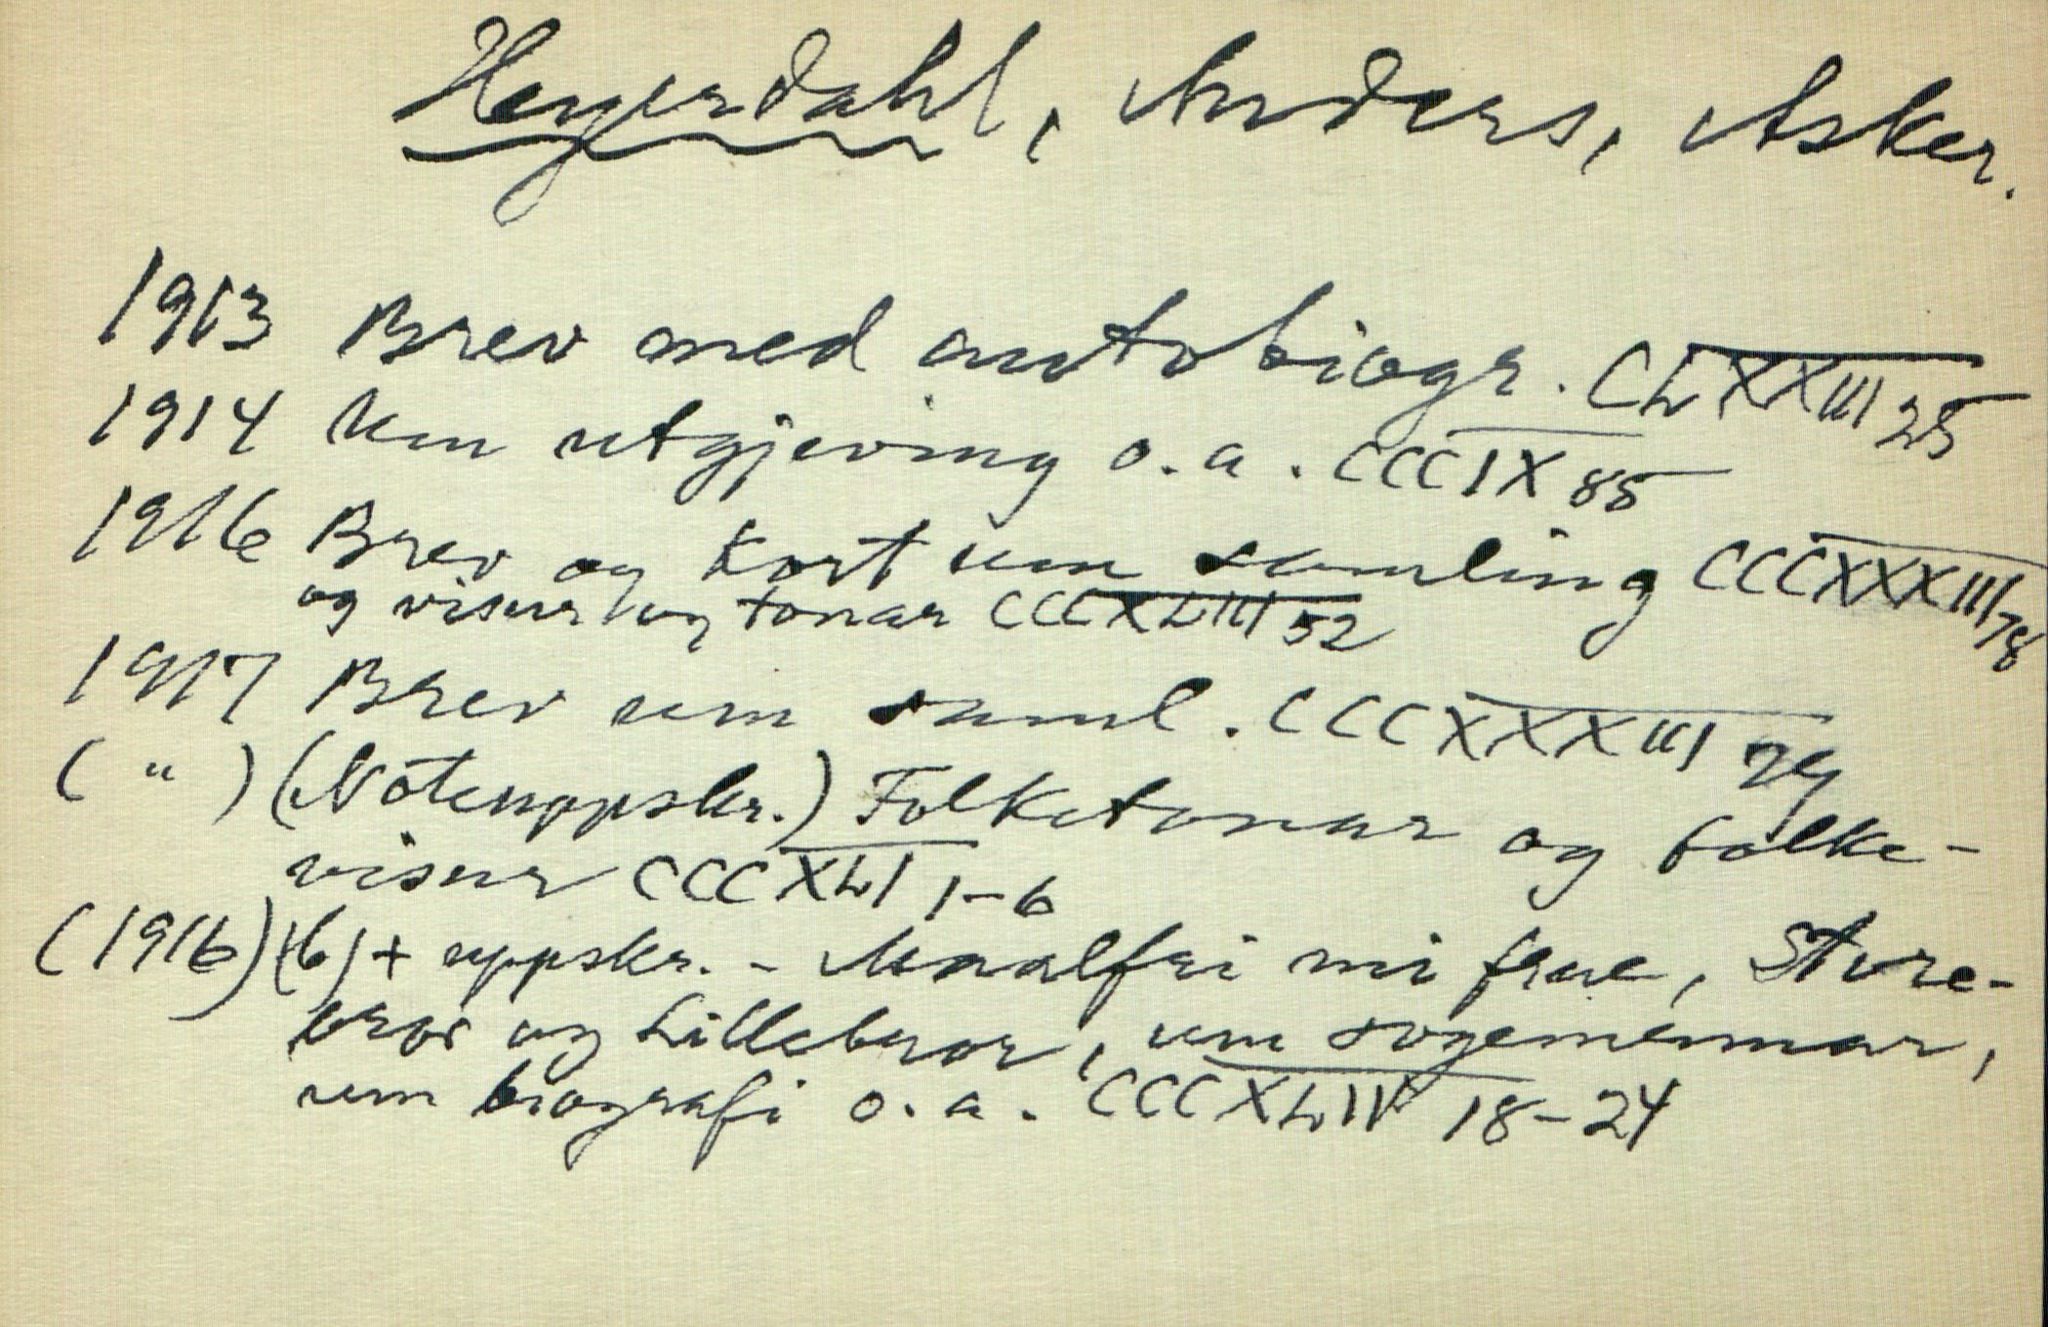 Heyerdahl, Anders, Asker.
1913 Brev med autobiogr. CLXXXIII 25
1914 Um utgjeving o. a. CCCIX 85
1916 Brev og kort um samling CCCXXXIII 78
og visur og tonar CCCXLIII 52
1917 Brev um saml. CCCXXXIII 79
( " ) (Noteuppskr.) Folketonar og folke-
visur CCCXLI 1-6
(1916) (b) + uppskr. - Maalfri mi frue, Store-
bror og Lillebror, um sogemennar,
um biografi o. a. CCCXLIV 18-24